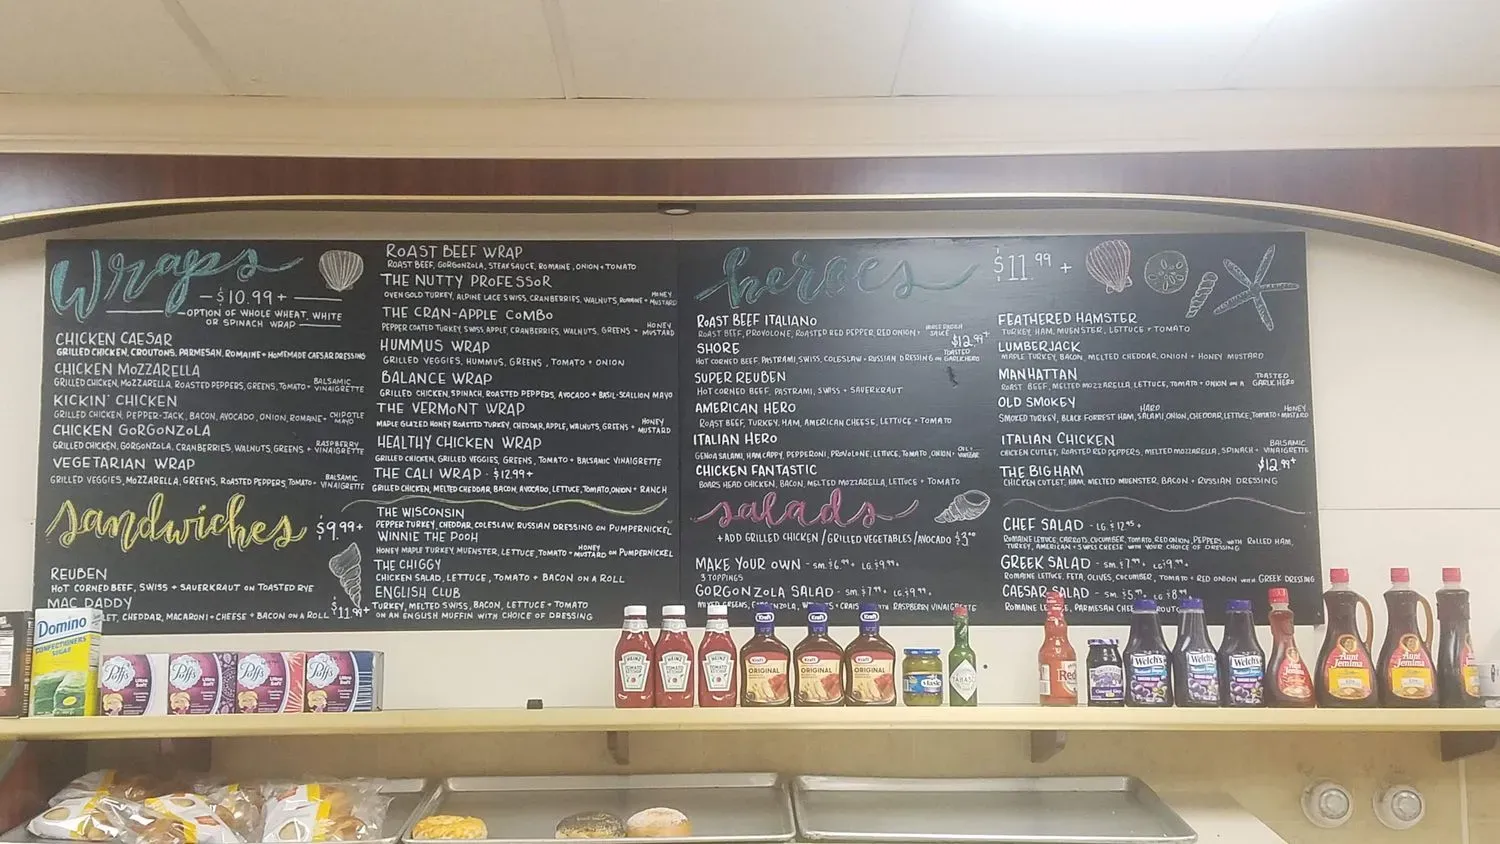 Wraps
$10.99+
OPTION OF WHOLE WHEAT, WHITE
OR SPINACH WRAP
CHICKEN CAESAR
GRILLED CHICKEN, CROUTONS, PARMESAN, ROMAINE + HOMEMADE CAESAR DRESSING
CHICKEN MOZZARELLA
GRILLED CHICKEN, MOZZARELLA, ROASTED PEPPERS, GREENS, TOMATO + BALSAMIC VINAIGRETTE
KICKIN' CHICKEN
GRILLED CHICKEN, PEPPER-JACK, BACON, AVOCADO, ONION, ROMAINE + CHIPOTLE MAYO
CHICKEN GORGONZOLA
GRILLED CHICKEN, GORGONZOLA, CRANBERRIES, WALNUTS, GREENS + RASPBERRY VINAIGRETTE
VEGETARIAN WRAP
GRILLED VEGGIES, MOZZARELLA, GREENS, ROASTED PEPPERS, TOMATO + BALSAMIC VINAIGRETTE
ROAST BEEF WRAP
ROAST BEEF, GORGONZOLA, STEAK SAUCE, ROMAINE, ONION + TOMATO
THE NUTTY PROFESSOR
OVEN GOLD TURKEY, ALPINE LACE SWISS, CRANBERRIES, WALNUTS, ROMAINE + HONEY MUSTARD
THE CRAN-APPLE COMBO
PEPPER COATED TURKEY, SWISS, APPLE, CRANBERRIES, WALNUTS, GREENS + HONEY MUSTARD
HUMMUS WRAP
GRILLED VEGGIES, HUMMUS, GREENS, TOMATO + ONION
BALANCE WRAP
GRILLED CHICKEN, SPINACH, ROASTED PEPPERS, AVOCADO + BASIL-SCALLION MAYO
THE VERMONT WRAP
MAPLE GLAZED HONEY ROASTED TURKEY, CHEDDAR, APPLE, WALNUTS, GREENS + HONEY MUSTARD
HEALTHY CHICKEN WRAP
GRILLED CHICKEN, GRILLED VEGGIES, GREENS, TOMATO + BALSAMIC VINAIGRETTE
THE CALI WRAP - $12.99+
GRILLED CHICKEN, MELTED CHEDDAR, BACON, AVOCADO, LETTUCE, TOMATO, ONION + RANCH
sandwiches $9.99+
REUBEN
HOT CORNED BEEF, SWISS + SAUERKRAUT ON TOASTED RYE
MAC DADDY
CHEDDAR, MACARONI + CHEESE + BACON ON A ROLL $11.99+
THE WISCONSIN
PEPPER TURKEY, CHEDDAR, COLESLAW, RUSSIAN DRESSING ON PUMPERNICKEL
WINNIE THE POOH
HONEY MAPLE TURKEY, MUENSTER, LETTUCE, TOMATO + HONEY MUSTARD ON PUMPERNICKEL
THE CHIGGY
CHICKEN SALAD, LETTUCE, TOMATO + BACON ON A ROLL
ENGLISH CLUB
TURKEY, MELTED SWISS, BACON, LETTUCE + TOMATO
ON AN ENGLISH MUFFIN WITH CHOICE OF DRESSING
heroes $11.99+
ROAST BEEF ITALIANO
ROAST BEEF, PROVOLONE, ROASTED RED PEPPER, RED ONION + HORSERADISH SAUCE
SHORE $12.99+
HOT CORNED BEEF, PASTRAMI, SWISS, COLESLAW + RUSSIAN DRESSING ON TOASTED GARLIC HERO
SUPER REUBEN
HOT CORNED BEEF, PASTRAMI, SWISS + SAUERKRAUT
AMERICAN HERO
ROAST BEEF, TURKEY, HAM, AMERICAN CHEESE, LETTUCE + TOMATO
ITALIAN HERO
GENOA SALAMI, HAM CAPPY, PEPPERONI, PROVOLONE, LETTUCE, TOMATO, ONION + OIL + VINEGAR
CHICKEN FANTASTIC
BOARS HEAD CHICKEN, BACON, MELTED MOZZARELLA, LETTUCE + TOMATO
FEATHERED HAMSTER
TURKEY, HAM, MUENSTER, LETTUCE + TOMATO
LUMBERJACK
MAPLE TURKEY, BACON, MELTED CHEDDAR, ONION + HONEY MUSTARD
MANHATTAN
ROAST BEEF, MELTED MOZZARELLA, LETTUCE, TOMATO + ONION ON A TOASTED GARLIC HERO
OLD SMOKEY
SMOKED TURKEY, BLACK FORREST HAM, HARD SALAMI, ONION, CHEDDAR, LETTUCE, TOMATO + HONEY MUSTARD
ITALIAN CHICKEN
CHICKEN CUTLET, ROASTED RED PEPPERS, MELTED MOZZARELLA, SPINACH + BALSAMIC VINAIGRETTE
THE BIG HAM $12.99+
CHICKEN CUTLET, HAM, MELTED MUENSTER, BACON + RUSSIAN DRESSING
salads
+ ADD GRILLED CHICKEN / GRILLED VEGETABLES / AVOCADO
MAKE YOUR OWN - SM. $6.99+ LG. $9.99+
3 TOPPINGS
GORGONZOLA SALAD - SM. $7.99+ LG. $9.99+
MIXED GREENS, GORGONZOLA, WITH RASPBERRY VINAIGRETTE
CHEF SALAD - LG. $12.95+
ROMAINE LETTUCE, CARROTS, CUCUMBER, TOMATO, RED ONION, PEPPERS WITH ROLLED HAM,
TURKEY, AMERICAN + SWISS CHEESE WITH YOUR CHOICE OF DRESSING
GREEK SALAD - SM. $7.99+ LG. $9.99+
ROMAINE LETTUCE, FETA, OLIVES, CUCUMBER, TOMATO + RED ONION WITH GREEK DRESSING
CAESAR SALAD - SM. LG.
ROMAINE LETTUCE, PARMESAN
Domino
CONFECTIONERS SUGAR
Puffs Ultra Soft
Puffs Ultra Soft
Puffs Ultra Soft
Puffs Ultra Soft
HEINZ
HEINZ
HEINZ
Kraft ORIGINAL
Kraft ORIGINAL
Kraft ORIGINAL
Vlasic
TABASCO
Red
Welch's
Welch's
Welch's
Aunt Jemima
Aunt Jemima